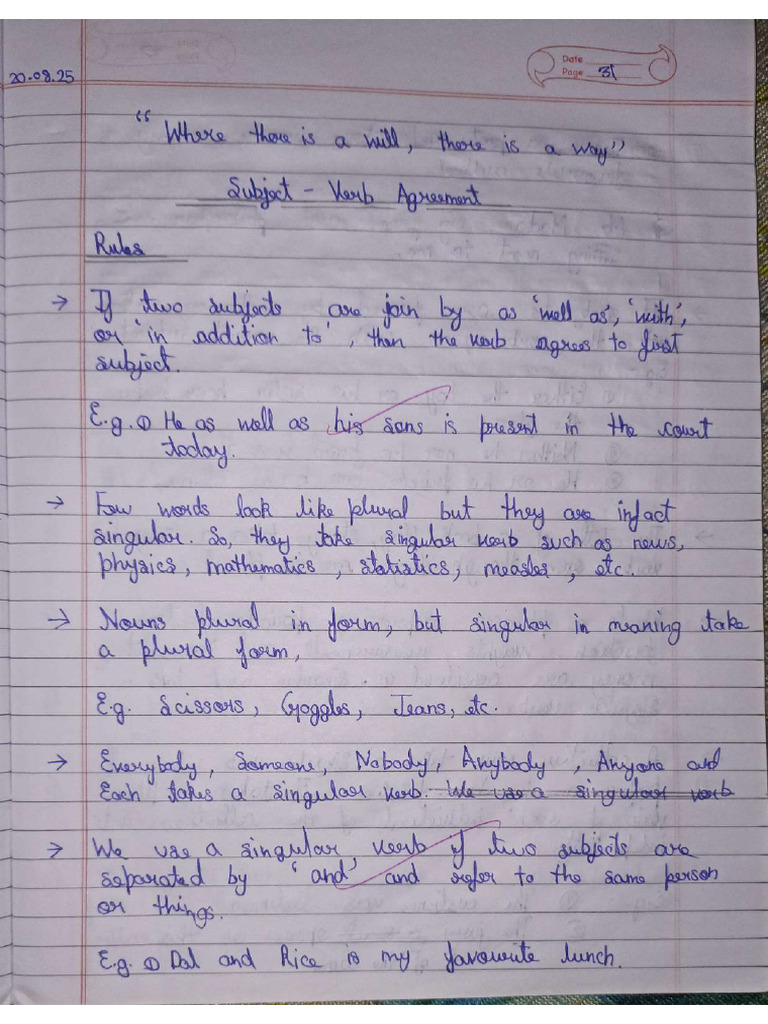 20.08.25
Date
Page 31
"Where there is a will, there is a way"
Subject - Verb Agreement
Rules
→ If two subjects are join by as 'well as', 'with',
or 'in addition to', then the verb agrees to first
subject.
E.g. ① He as well as his sons is present in the court
today.
→ Few words look like plural but they are infact
singular. So, they take singular verb such as news,
physics, mathematics, statistics, measles, etc.
→ Nouns plural in form, but singular in meaning take
a plural form,
E.g. Scissors, Goggles, Jeans, etc.
→ Everybody, Someone, Nobody, Anybody, Anyone and
Each takes a singular verb. We use a singular verb
→ We use a singular verb if two subjects are
separated by 'and' and refer to the same person
or things.
E.g. ① Dal and Rice is my favourite lunch.